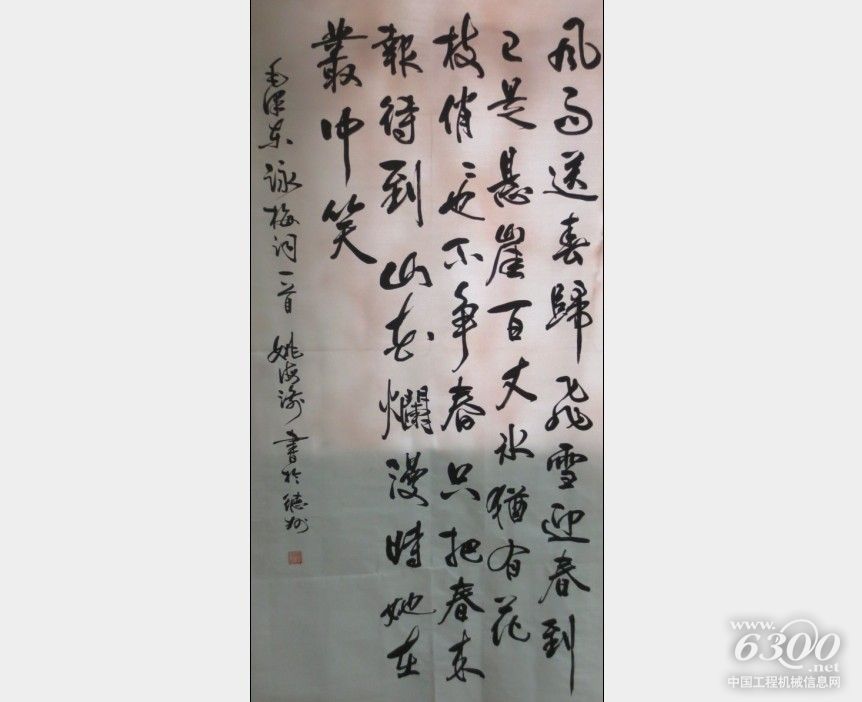 風雨送春歸飛雪迎春到
已是悬崖百丈冰猶有花
枝俏〻也不争春只把春来
報待到山花爛漫時她在
叢中笑
毛泽东詠梅词一首 姚海 書於德州
www.6300.net
中国工程机械信息网